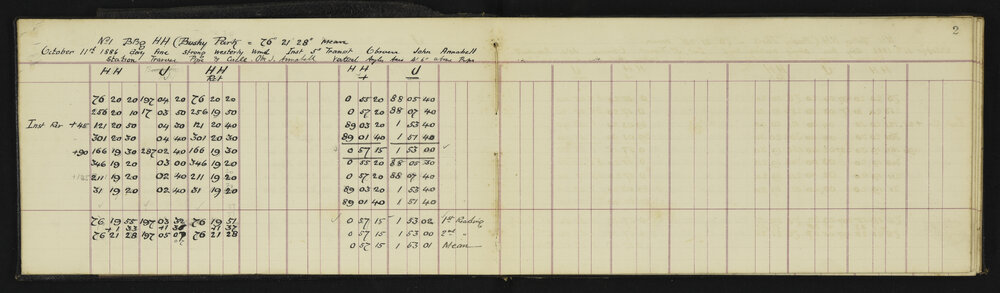 2
No 1 BBg HH (Bushy Park) = 76° 21' 28" Mean
October 11th 1886 day fine strong westerly wind Inst 5" Transit Observer John Annabell
Station Traverse Pipe & Cable. Obs J. Annabell Vertical Angles
HH U HH Ret HH + U
76 20 20 197 04 20 76 20 20 0 55 20 88 05 40
256 20 10 17 03 50 256 19 50 0 57 20 88 07 40
Inst Rev +45 121 20 50 04 30 121 20 40 89 03 20 1 53 40
301 20 30 04 40 301 20 30 89 01 40 1 51 40
+90 166 19 30 287 02 40 166 19 30 0 57 15 1 53 00
346 19 20 03 00 346 19 20 0 55 20 88 05 30
211 19 20 02 40 211 19 20 0 57 20 88 07 40
31 19 20 02 40 31 19 20 89 03 20 1 53 40
89 01 40 1 51 40
76 19 55 197 03 32 76 19 51 0 57 15 1 53 02 1st Reading
+1 33 +1 37
76 21 28 197 05 09 76 21 28 0 57 15 1 53 00 2nd "
0 57 15 1 53 01 Mean